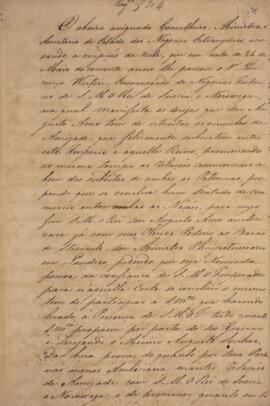 O abaixo assignado Conselheiro, Ministro e
Secretario de Estado dos Negocios Estrangeiros, ac-
cusando a recepção da Nota, que em data de 24
de Maio do corrente anno lhe passou o Snr. Lou-
renço Westin, Encarregado de Negocios
de S. M. O Rei de Suecia e Noruega,
na qual manifesta os desejos que seu
Augusto Amo tem de estreitar os vinculos de
Amizade, que felizmente subsistem entre
este Imperio e aquelle Reino, promovendo
ao mesmo tempo as relações commerciaes a
bem dos subditos de ambas as Potencias, pro-
pondo que se conclua hum Tratado de com-
mercio entre ambas as Nações, para cujo
fim S. M. O Rei Seu Augusto Amo
com Seus Plenos Poderes ao Barão
de seu Ministro Plenipotenciario
em Londres, pedindo que seja Nomeada
pessoa da confiança de S. M. O Imperador
para n'aquella Corte se concluir o mesmo;
tem de participar a S. Mce. que havendo
levado á Presença de S. M. I. tudo quanto
S. Mce. propoem por parte do seo Governo
e Desejando o Mesmo Augusto Senhor,
Dar huma prova de quanto por Sua Parte
não menos Ambiciona manter relações
de Amizade com S. M. O Rei de Suecia
e Noruega, e de promover quanto em si